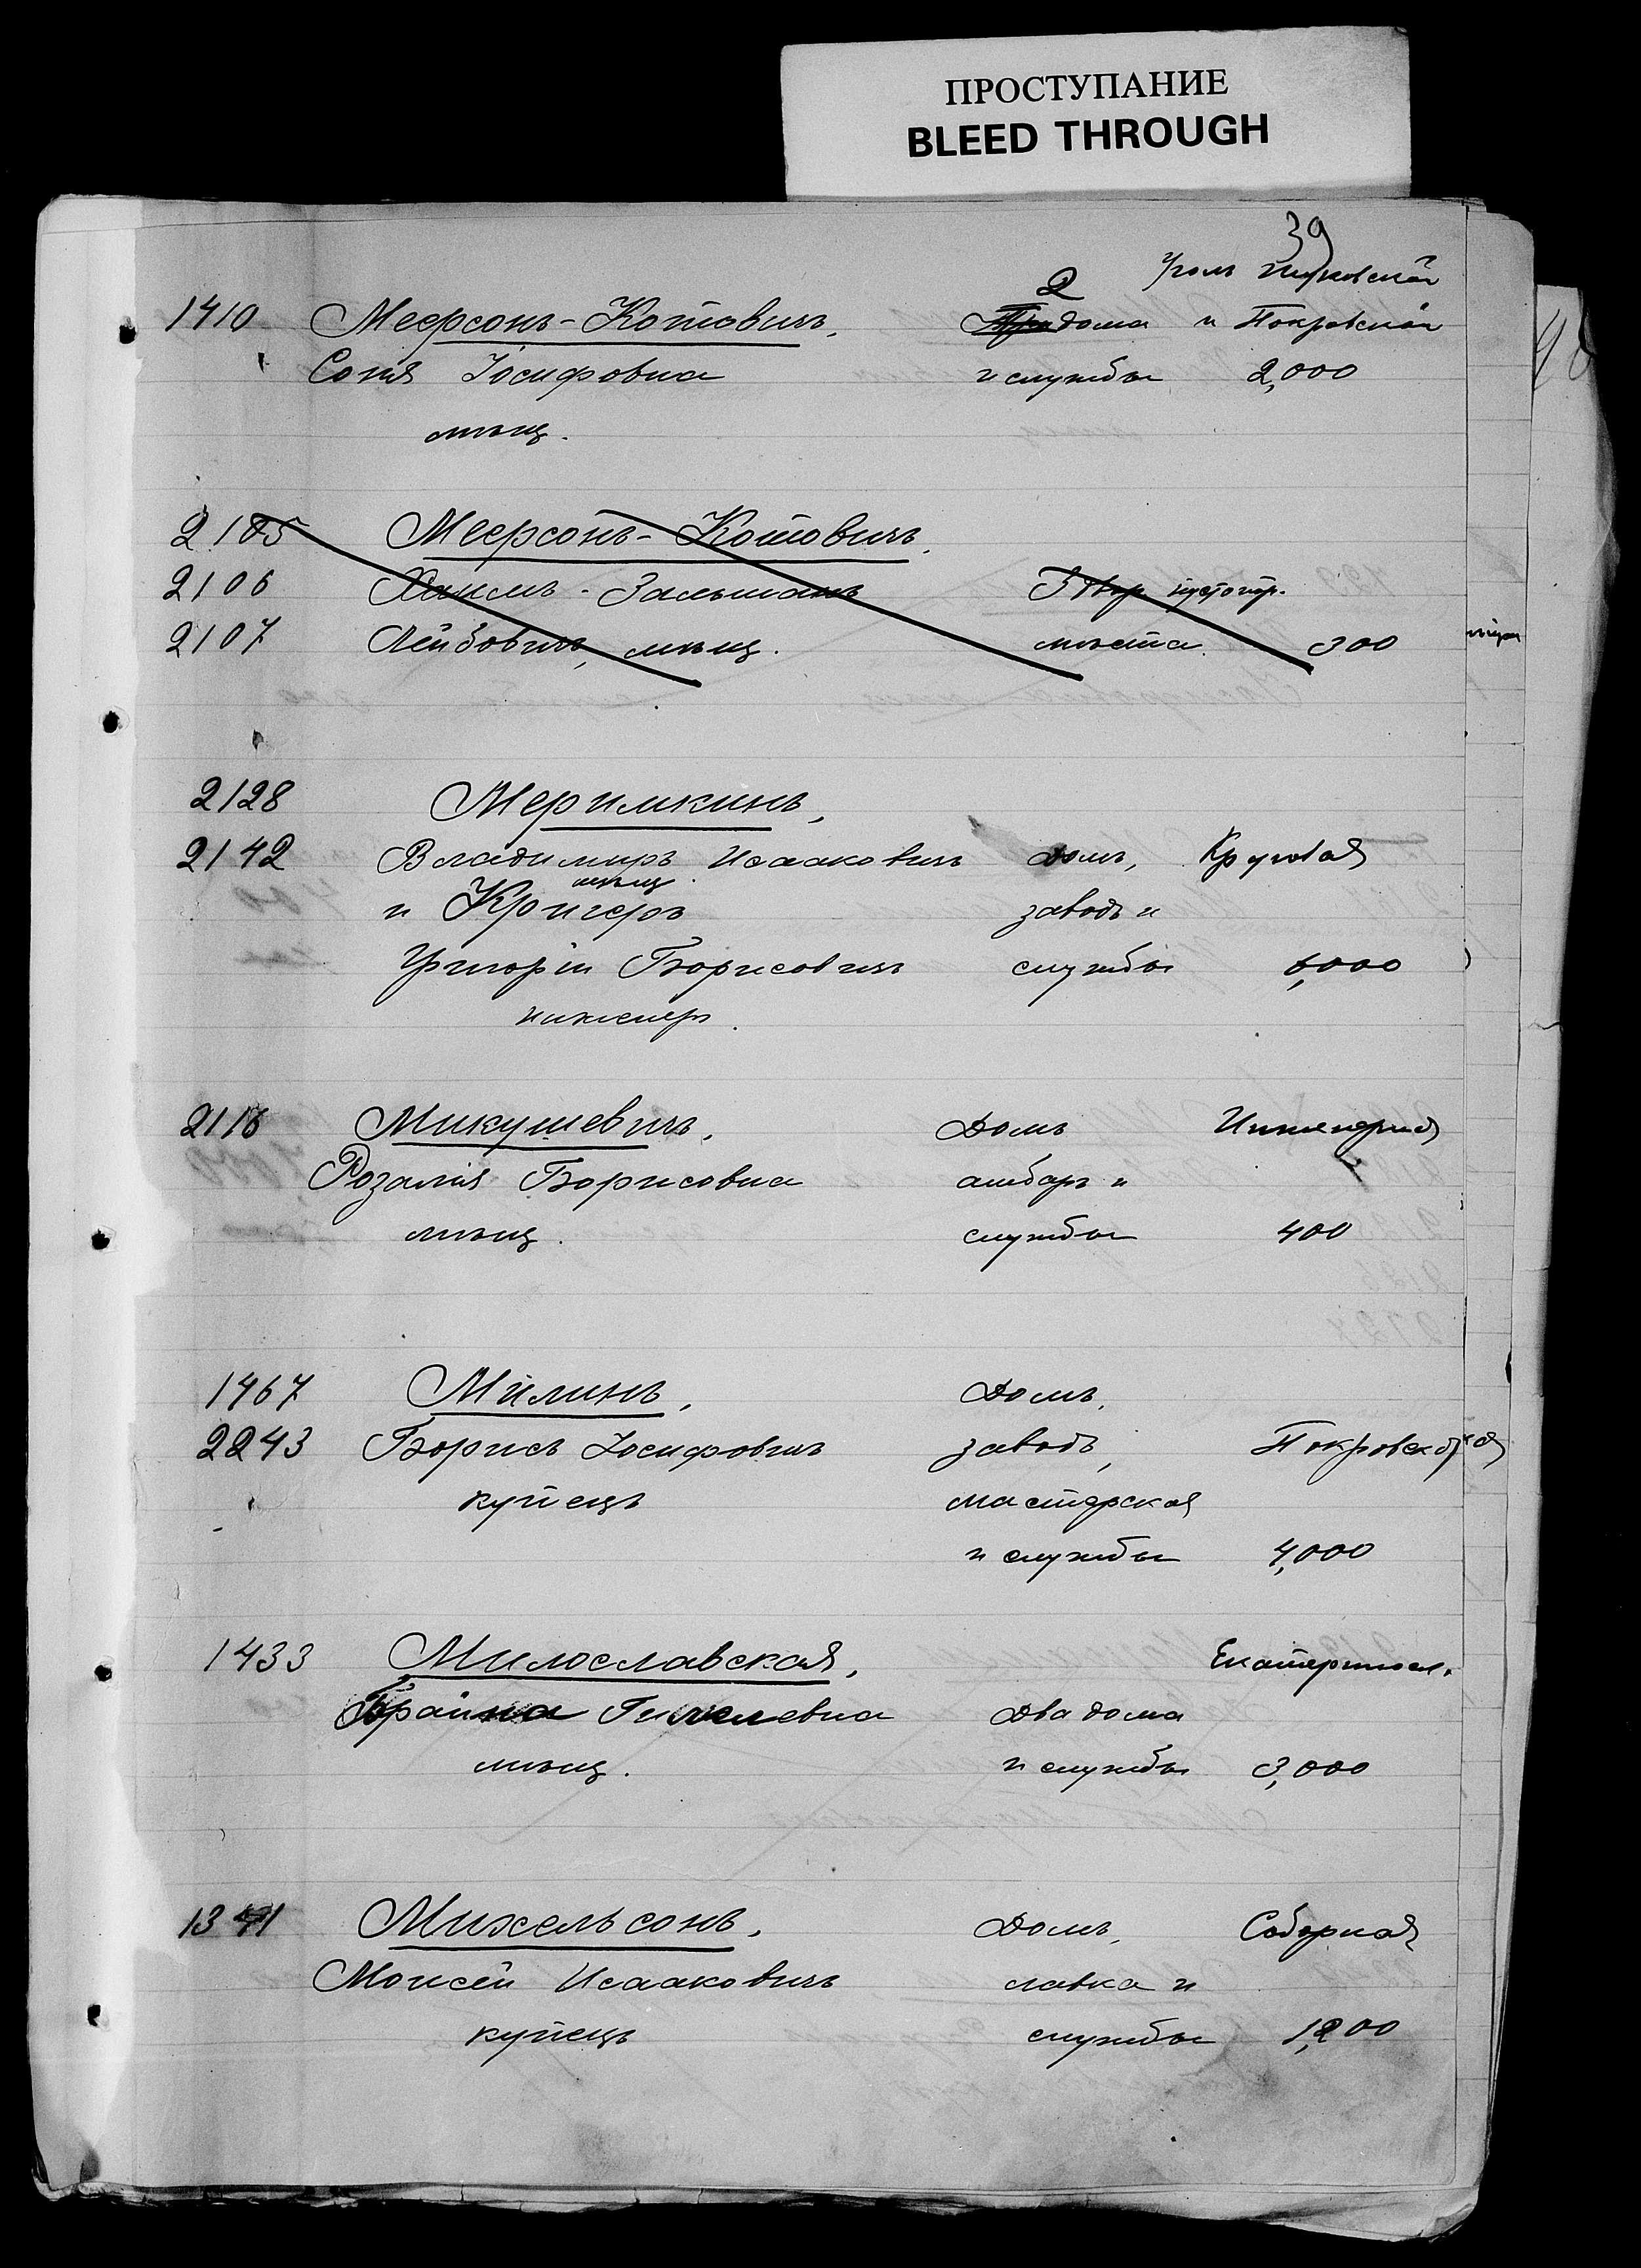 ПРОСТУПАНИЕ
BLEED THROUGH
39
Уголъ
1410 Меерсонъ-Котовичъ, 2 дома и Покровской
Соня Іосифовна и службы 2,000
мѣщ.
2105 Меерсонъ-Котовичъ,
2106 Хаимъ-Залманъ 3 двор. пустопор.
2107 Лейбовичъ, мѣщ. мѣста 300
2128 Меримкинъ,
2142 Владимиръ Исааковичъ Домъ, Круговая
мѣщ.
и Кригеръ заводъ и
Григорій Борисовичъ службы 6,000
инженеръ.
2116 Микушевичъ, Домъ Инженерная
Розалія Борисовна амбаръ и
мѣщ. службы 400
1467 Милинъ, Домъ,
2243 Борисъ Іосифовичъ заводъ, Покровская
купецъ мастерская
и службы 4,000
1433 Милославская, Екатериносл.
Брайна Гилелевна Два дома
мѣщ. и службы 3,000
1341 Михельсонъ, Домъ, Соборная
Моисей Исааковичъ лавка и
купецъ службы 1,200